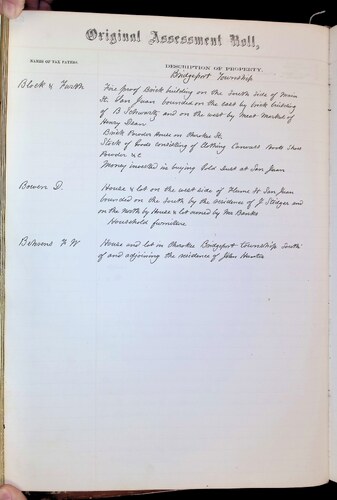 Original Assessment Roll,
NAMES OF TAX PAYERS.
DESCRIPTION OF PROPERTY.
Bridgeport Township
Block & Furth
Fire proof Brick building on the South side of Main
St. San Juan bounded on the east by brick building
of B Schwartz and on the west by Meat Market of
Henry Dean
Brick Powder House on Cherokee St.
Stock of Goods consisting of Clothing Boots Shoes
Powder &c
Money invested in buying Gold Dust at San Juan
Bowen D.
House & lot on the west side of Flume St San Juan
bounded on the South by the residence of J. Stidger and
on the North by House & lot owned by Mrs Banks
Household furniture
Behrens H W
House and lot in Cherokee Bridgeport Township South
of and adjoining the residence of John Hunter